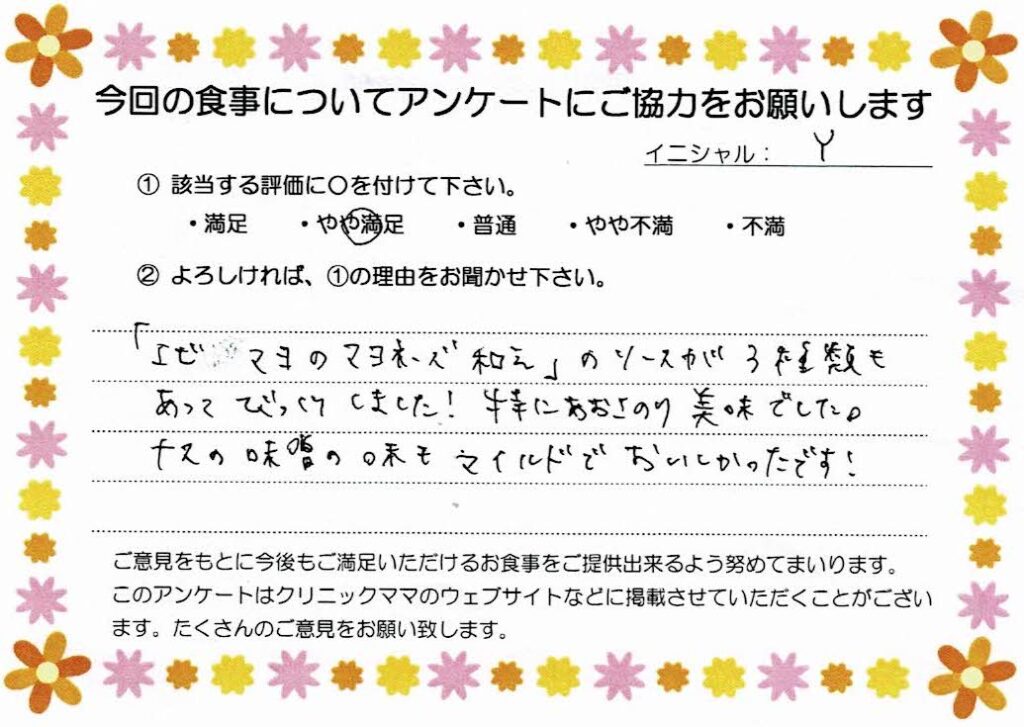 今回の食事についてアンケートにご協力をお願いします
イニシャル： Y
① 該当する評価に〇を付けて下さい。
・満足 ・やや満足 ・普通 ・やや不満 ・不満
② よろしければ、①の理由をお聞かせ下さい。
「エビマヨのマヨネーズ和え」のソースが3種類も
あってびっくりしました！特にあおさのり美味でした。
ナスの味噌の味もマイルドでおいしかったです！
ご意見をもとに今後もご満足いただけるお食事をご提供出来るよう努めてまいります。
このアンケートはクリニックママのウェブサイトなどに掲載させていただくことがござい
ます。たくさんのご意見をお願い致します。